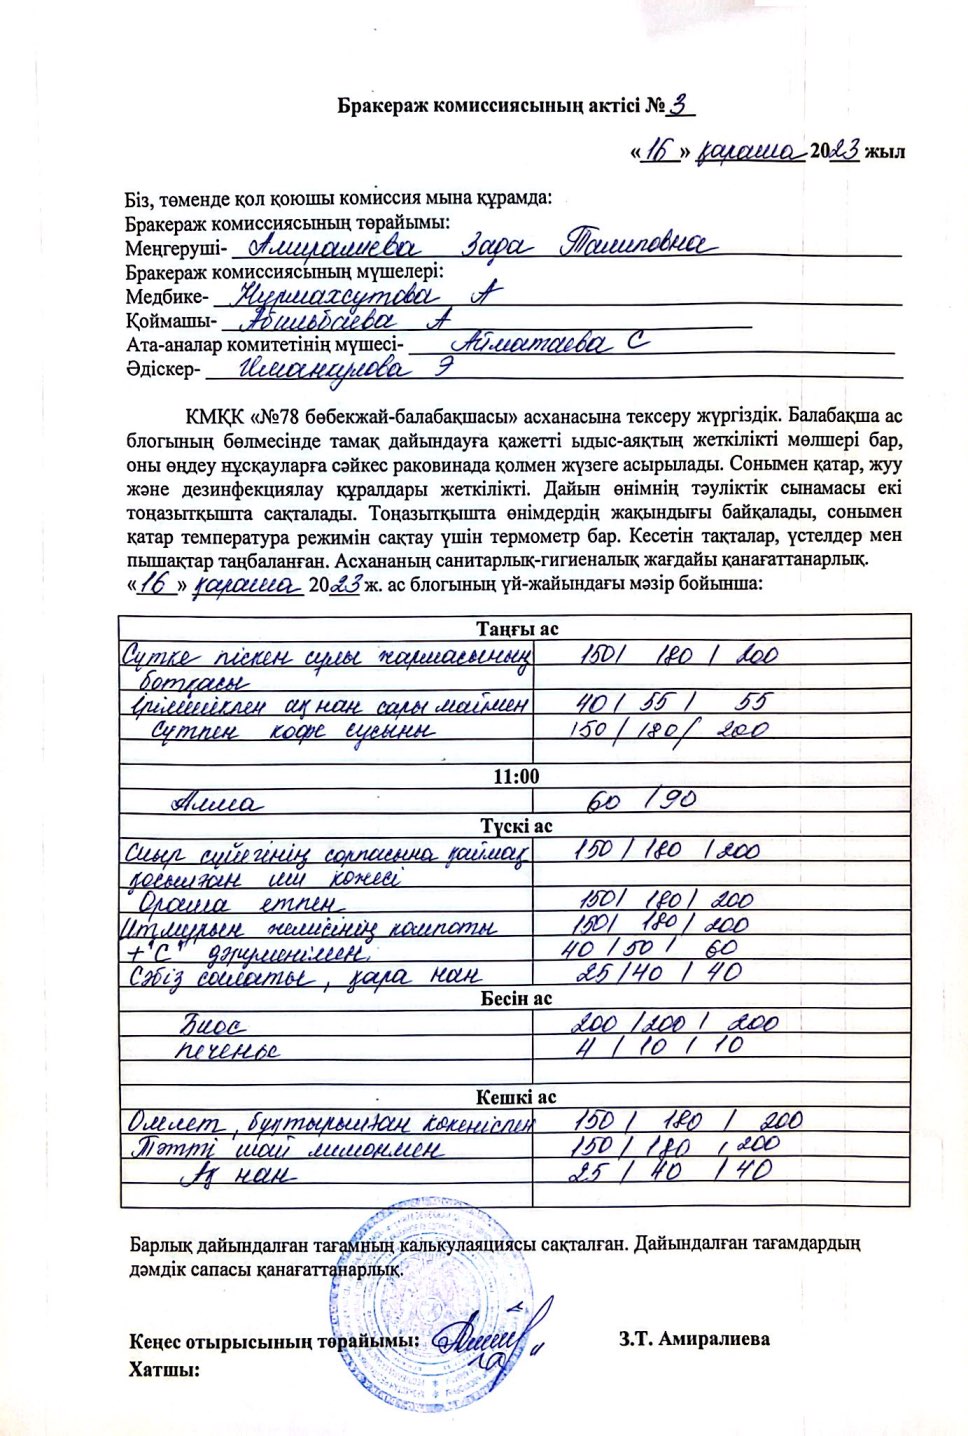 Бракераж комиссиясының актісі № 3
« 16 » қараша 2023 жыл
Біз, төменде қол қоюшы комиссия мына құрамда:
Бракераж комиссиясының төрайымы:
Меңгеруші- Амиралиева Зада Талиповна
Бракераж комиссиясының мүшелері:
Медбике- Нурмахсутова А
Қоймашы- Абильбаева А
Ата-аналар комитетінің мүшесі- Айматаева С
Әдіскер- Иманкулова Э
КМҚК «№78 бөбекжай-балабақшасы» асханасына тексеру жүргіздік. Балабақша ас
блогының бөлмесінде тамақ дайындауға қажетті ыдыс-аяқтың жеткілікті мөлшері бар,
оны өңдеу нұсқауларға сәйкес раковинада қолмен жүзеге асырылады. Сонымен қатар, жуу
және дезинфекциялау құралдары жеткілікті. Дайын өнімнің тәуліктік сынамасы екі
тоңазытқышта сақталады. Тоңазытқышта өнімдердің жақындығы байқалады, сонымен
қатар температура режимін сақтау үшін термометр бар. Кесетін тақталар, үстелдер мен
пышақтар таңбаланған. Асхананың санитарлық-гигиеналық жағдайы қанағаттанарлық.
« 16 » қараша 2023 ж. ас блогының үй-жайындағы мәзір бойынша:
Таңғы ас
Сүтке піскен сұлы жармасының 150/ 180 / 200
ботқасы
Ірімшікпен ақ нан сары маймен 40 / 55 / 55
Сүтпен кофе сусыны 150 / 180 / 200
11:00
Алма 60 / 90
Түскі ас
Сиыр сүйегінің сорпасына қаймақ 150 / 180 / 200
қосылған щи көжесі
Ораша етпен 150/ 180 / 200
Итмұрын жемісінің компоты 150/ 180 / 200
+ "С" дәруменімен. 40 / 50 / 60
Сәбіз салаты, қара нан 25 / 40 / 40
Бесін ас
Биос 200 / 200 / 200
печенье 4 / 10 / 10
Кешкі ас
Омлет, бұқтырылған көкөніспен 150 / 180 / 200
Тәтті шай лимонмен 150 / 180 / 200
Ақ нан 25 / 40 / 40
Барлық дайындалған тағамның калькулаяциясы сақталған. Дайындалған тағамдардың
дәмдік сапасы қанағаттанарлық.
Кеңес отырысының төрайымы: З.Т. Амиралиева
Хатшы: